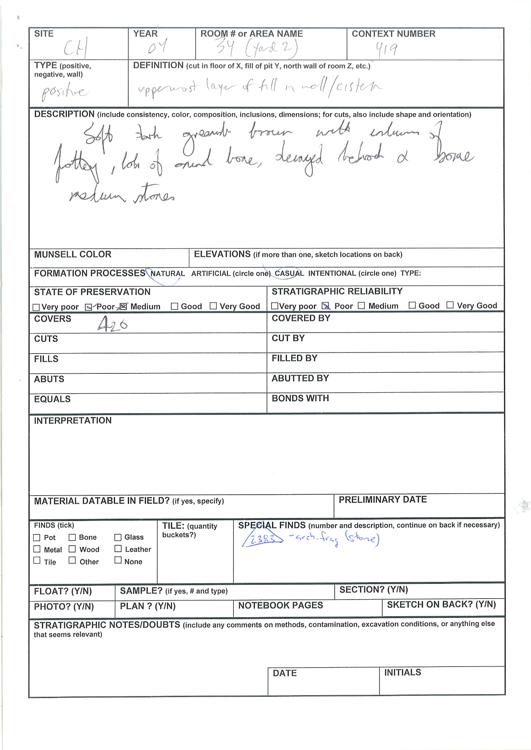 SITE YEAR ROOM # or AREA NAME CONTEXT NUMBER
CH 04 34 (yard 2) 419
TYPE (positive, negative, wall) DEFINITION (cut in floor of X, fill of pit Y, north wall of room Z, etc.)
positive uppermost layer of fill in well/cistern
DESCRIPTION (include consistency, color, composition, inclusions, dimensions; for cuts, also include shape and orientation)
Soft dark greenish brown with inclusions of
pottery, lots of animal bone, decayed &
medium stones
MUNSELL COLOR ELEVATIONS (if more than one, sketch locations on back)
FORMATION PROCESSES NATURAL ARTIFICIAL (circle one) CASUAL INTENTIONAL (circle one) TYPE:
STATE OF PRESERVATION STRATIGRAPHIC RELIABILITY
Very poor Poor Medium Good Very Good Very poor Poor Medium Good Very Good
COVERS 420 COVERED BY
CUTS CUT BY
FILLS FILLED BY
ABUTS ABUTTED BY
EQUALS BONDS WITH
INTERPRETATION
MATERIAL DATABLE IN FIELD? (if yes, specify) PRELIMINARY DATE
FINDS (tick) TILE: (quantity buckets?) SPECIAL FINDS (number and description, continue on back if necessary)
Pot Bone Glass 2383 - arch. frag (stone)
Metal Wood Leather
Tile Other None
FLOAT? (Y/N) SAMPLE? (if yes, # and type) SECTION? (Y/N)
PHOTO? (Y/N) PLAN ? (Y/N) NOTEBOOK PAGES SKETCH ON BACK? (Y/N)
STRATIGRAPHIC NOTES/DOUBTS (include any comments on methods, contamination, excavation conditions, or anything else
that seems relevant)
DATE INITIALS